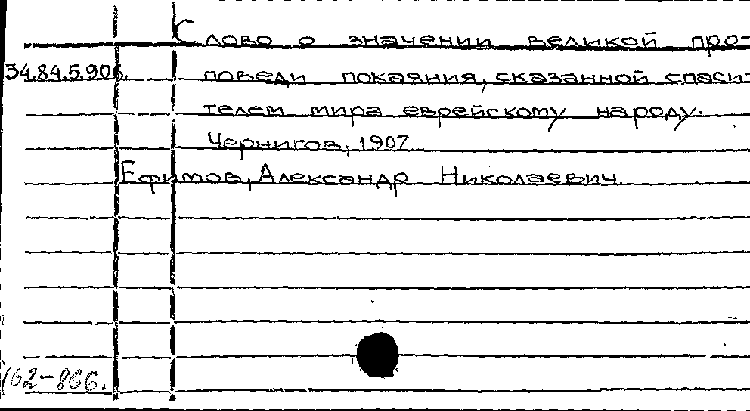 Слово о значении великой про-
34.84.5.906. поведи покаяния, сказанной спаси-
телем мира еврейскому народу.
Чернигов, 1907
Ефимов, Александр Николаевич
162-866.